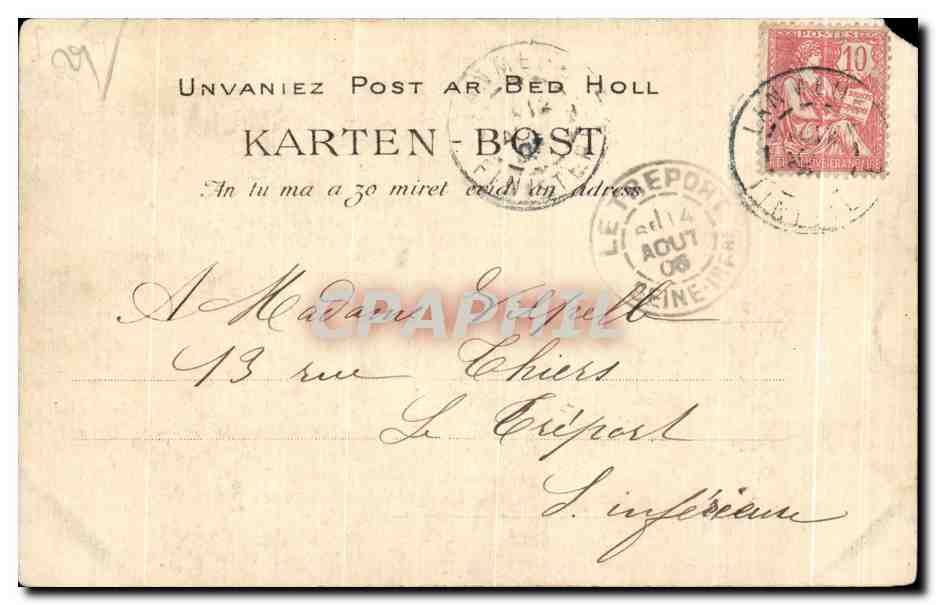 29
UNVANIEZ POST AR BED HOLL
KARTEN-BOST
An tu ma a zo miret evid an adress
POSTES 10
LANMEUR
FINISTERE
LE TREPORT
14
AOUT
03
SEINE-INFRE
CPAPHIL
A Madame
13 rue Thiers
Le Tréport
S. inférieure